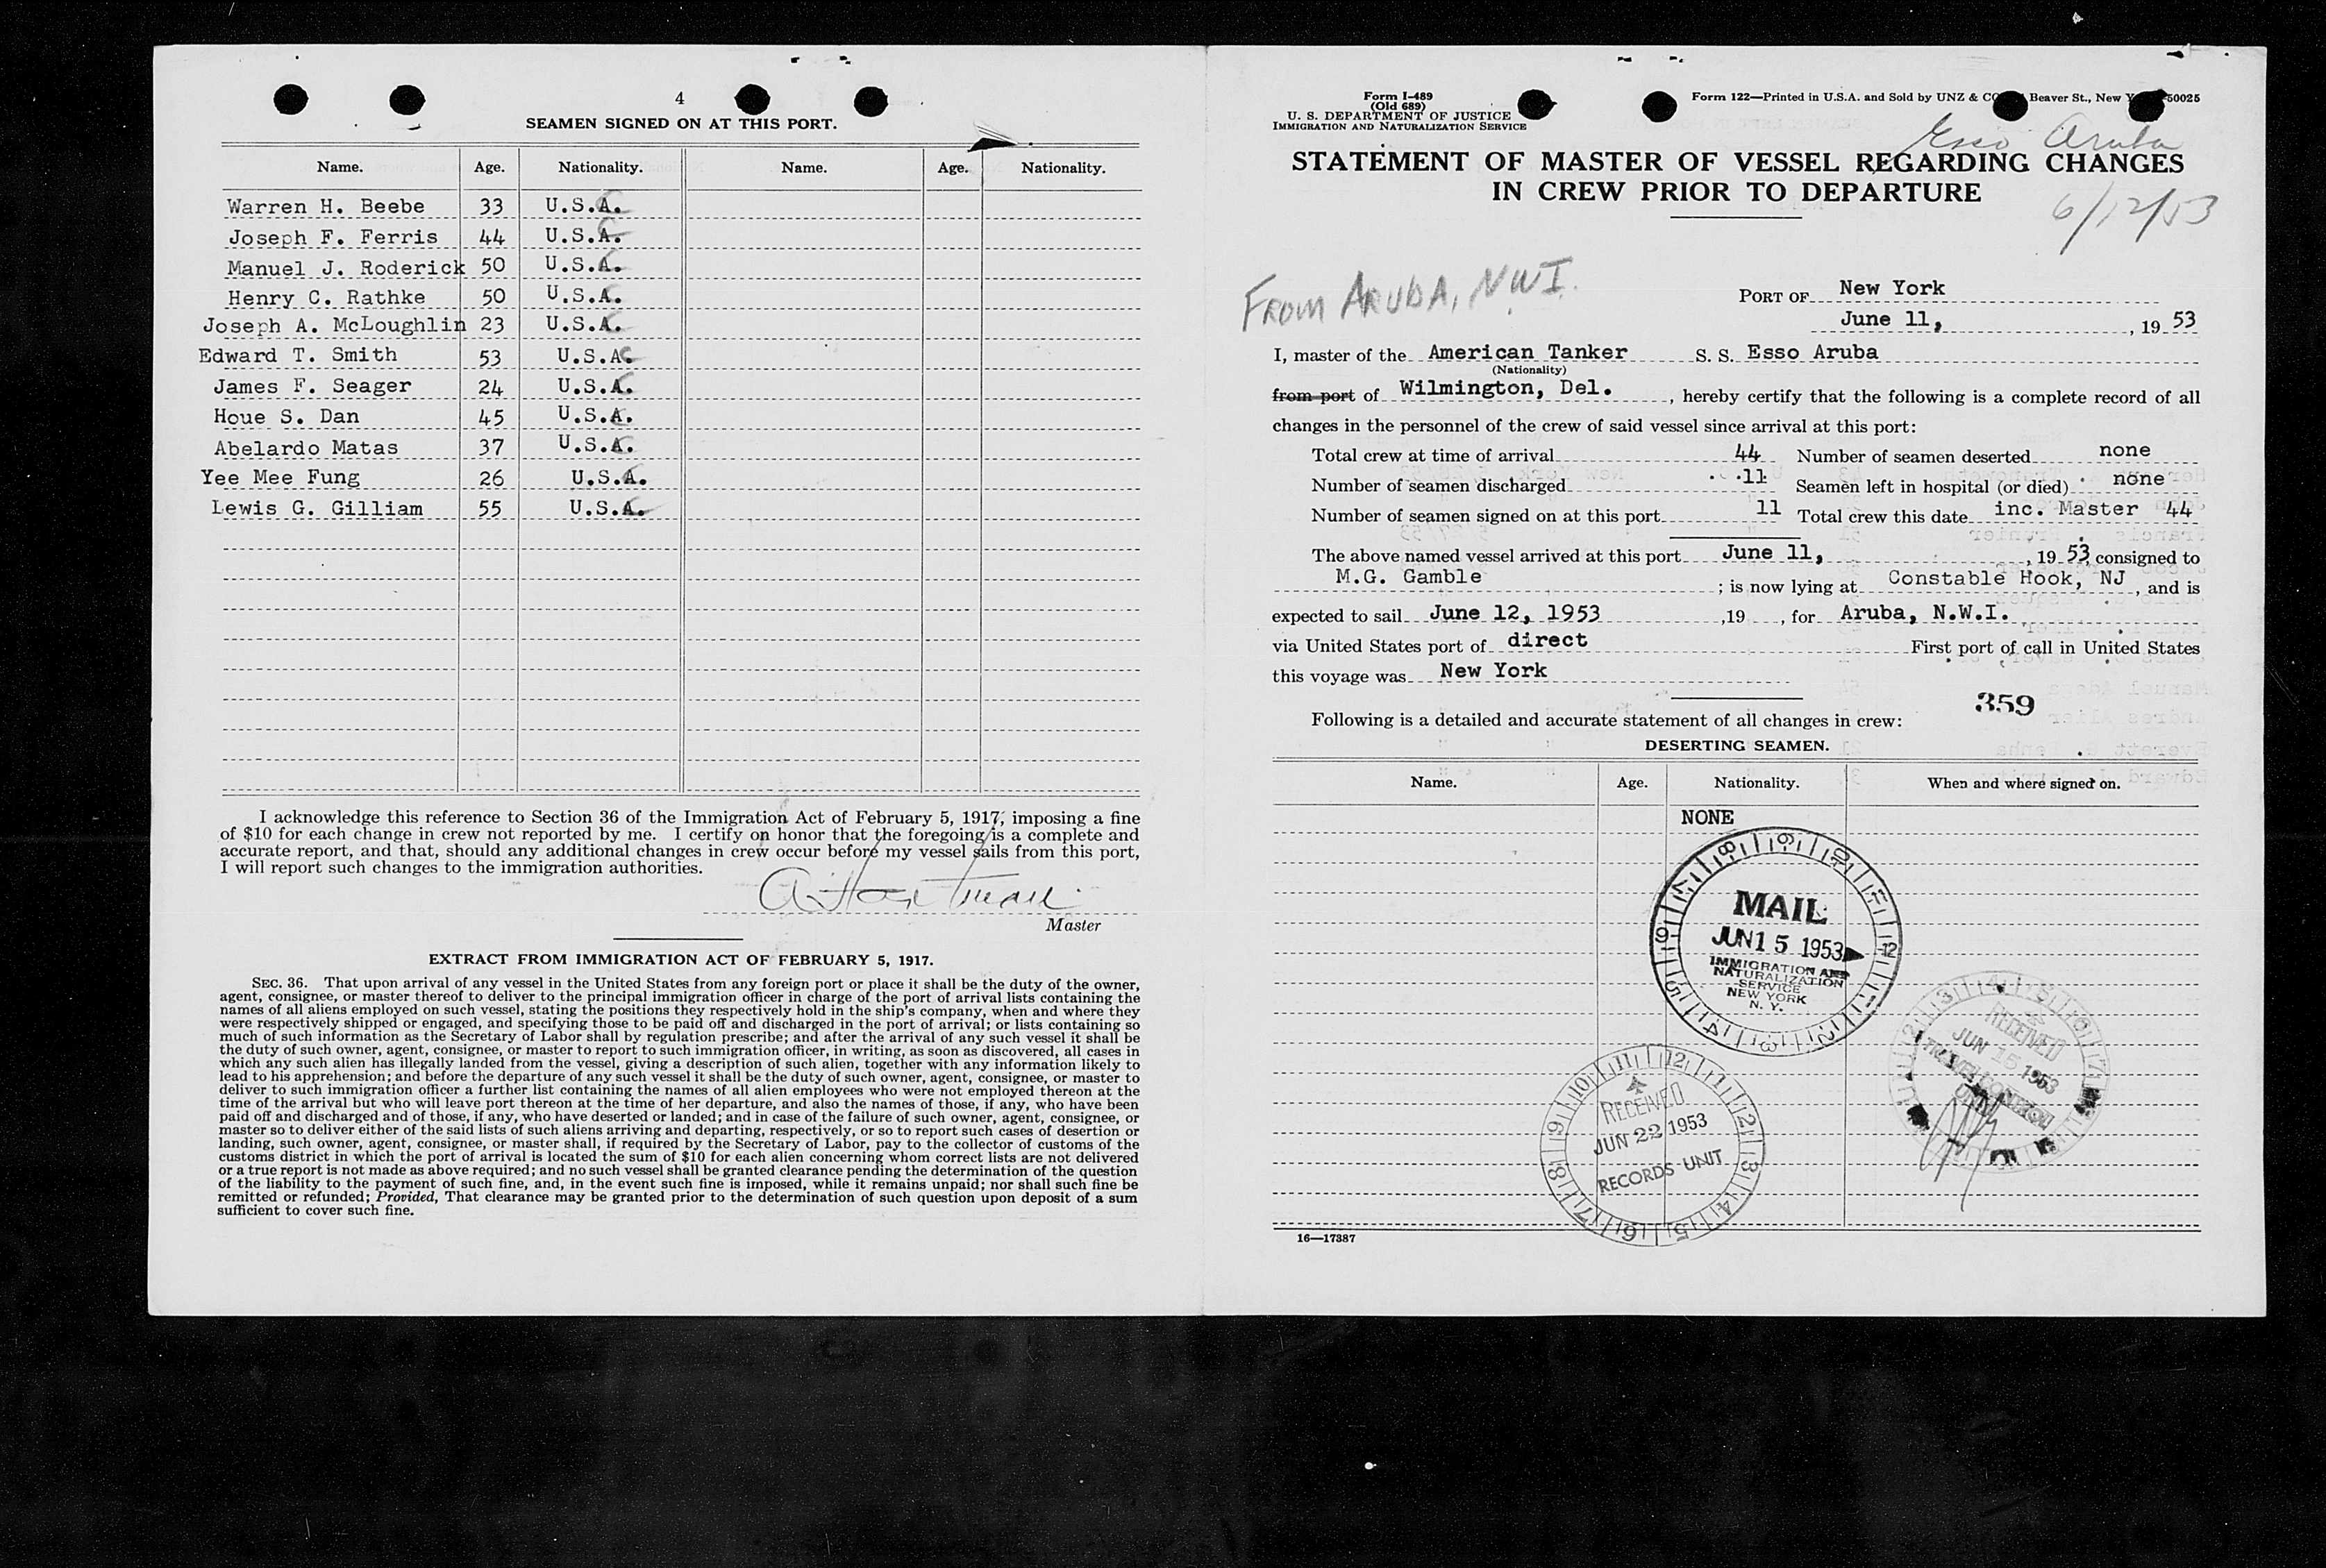 4
SEAMEN SIGNED ON AT THIS PORT.
Name. Age. Nationality. Name. Age. Nationality.
Warren H. Beebe 33 U.S.A.
Joseph F. Ferris 44 U.S.A.
Manuel J. Roderick 50 U.S.A.
Henry C. Rathke 50 U.S.A.
Joseph A. McLoughlin 23 U.S.A.
Edward T. Smith 53 U.S.A.
James F. Seager 24 U.S.A.
Houe S. Dan 45 U.S.A.
Abelardo Matas 37 U.S.A.
Yee Mee Fung 26 U.S.A.
Lewis G. Gilliam 55 U.S.A.
I acknowledge this reference to Section 36 of the Immigration Act of February 5, 1917, imposing a fine
of $10 for each change in crew not reported by me. I certify on honor that the foregoing is a complete and
accurate report, and that, should any additional changes in crew occur before my vessel sails from this port,
I will report such changes to the immigration authorities.
Master
EXTRACT FROM IMMIGRATION ACT OF FEBRUARY 5, 1917.
SEC. 36. That upon arrival of any vessel in the United States from any foreign port or place it shall be the duty of the owner,
agent, consignee, or master thereof to deliver to the principal immigration officer in charge of the port of arrival lists containing the
names of all aliens employed on such vessel, stating the positions they respectively hold in the ship's company, when and where they
were respectively shipped or engaged, and specifying those to be paid off and discharged in the port of arrival; or lists containing so
much of such information as the Secretary of Labor shall by regulation prescribe; and after the arrival of any such vessel it shall be
the duty of such owner, agent, consignee, or master to report to such immigration officer, in writing, as soon as discovered, all cases in
which any such alien has illegally landed from the vessel, giving a description of such alien, together with any information likely to
lead to his apprehension; and before the departure of any such vessel it shall be the duty of such owner, agent, consignee, or master to
deliver to such immigration officer a further list containing the names of all alien employees who were not employed thereon at the
time of the arrival but who will leave port thereon at the time of her departure, and also the names of those, if any, who have been
paid off and discharged and of those, if any, who have deserted or landed; and in case of the failure of such owner, agent, consignee, or
master so to deliver either of the said lists of such aliens arriving and departing, respectively, or so to report such cases of desertion or
landing, such owner, agent, consignee, or master shall, if required by the Secretary of Labor, pay to the collector of customs of the
customs district in which the port of arrival is located the sum of $10 for each alien concerning whom correct lists are not delivered
or a true report is not made as above required; and no such vessel shall be granted clearance pending the determination of the question
of the liability to the payment of such fine, and, in the event such fine is imposed, while it remains unpaid; nor shall such fine be
remitted or refunded; Provided, That clearance may be granted prior to the determination of such question upon deposit of a sum
sufficient to cover such fine.
Form I-489
(Old 689)
U. S. DEPARTMENT OF JUSTICE
IMMIGRATION AND NATURALIZATION SERVICE
Form 122—Printed in U.S.A. and Sold by UNZ & Beaver St., New 50025
Esso Aruba
STATEMENT OF MASTER OF VESSEL REGARDING CHANGES
IN CREW PRIOR TO DEPARTURE
6/12/53
FROM ARUBA, NWI.
PORT OF New York
June 11, , 19 53
I, master of the American Tanker S. S. Esso Aruba
(Nationality)
from port of Wilmington, Del. , hereby certify that the following is a complete record of all
changes in the personnel of the crew of said vessel since arrival at this port:
Total crew at time of arrival 44 Number of seamen deserted none
Number of seamen discharged 11 Seamen left in hospital (or died) none
Number of seamen signed on at this port 11 Total crew this date inc. Master 44
The above named vessel arrived at this port June 11, , 19 53, consigned to
M.G. Gamble ; is now lying at Constable Hook, NJ , and is
expected to sail June 12, 1953 ,19 , for Aruba, N.W.I.
via United States port of direct First port of call in United States
this voyage was New York
359
Following is a detailed and accurate statement of all changes in crew:
DESERTING SEAMEN.
Name. Age. Nationality. When and where signed on.
NONE
MAIL
JUN 15 1953
IMMIGRATION AND
NATURALIZATION
SERVICE
NEW YORK
N. Y.
RECEIVED
JUN 15 1953
RECEIVED
JUN 22 1953
RECORDS UNIT
16—17387